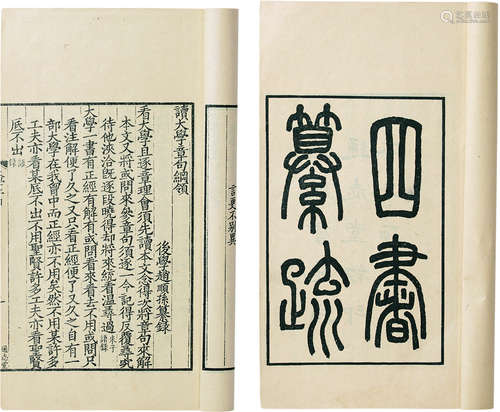 四書
纂疏
讀大學章句綱領
後學趙順孫纂錄
看大學且逐章理會須先讀本文念得次將章句來解
本文又將或問來參章句須逐一令記得反覆尋究
待他浹洽既逐段曉得却將來統看温尋過朱子語錄
大學一書有正經有解有或問看來看去不用或問只
看注解便了久之又只看正經便了又久之自有一
部大學在我胷中而正經亦不用矣然不用某許多
工夫亦看某底不出不用聖賢許多工夫亦看聖賢
底不出語錄